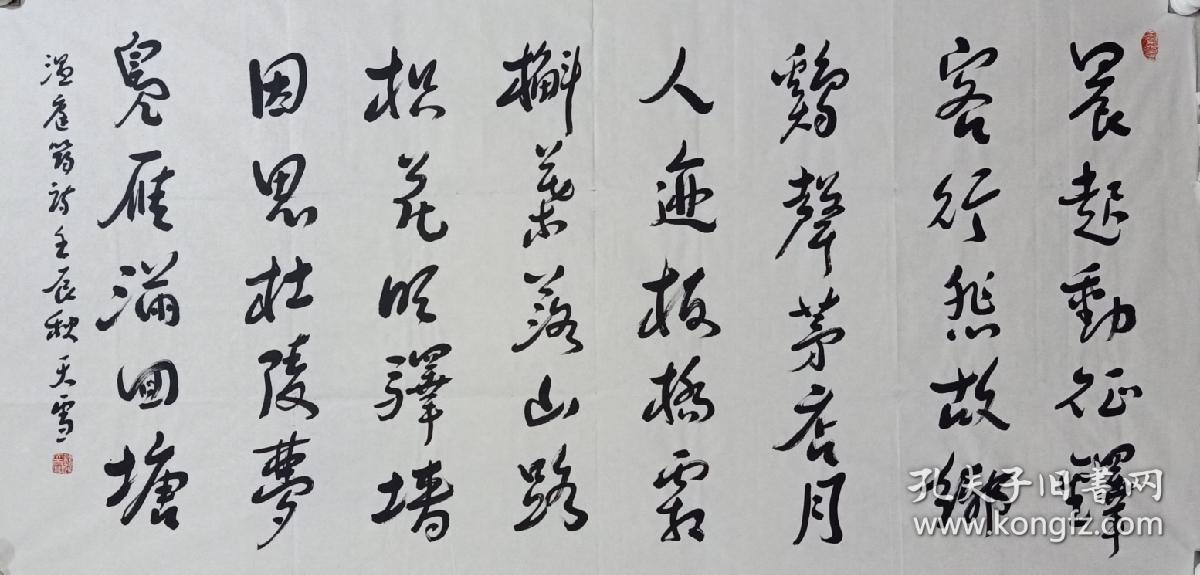 晨起動征鐸
客行悲故鄉
鷄聲茅店月
人迹板橋霜
槲葉落山路
枳花明驛墻
因思杜陵夢
鳧雁滿回塘
温庭筠詩壬辰秋天雪
孔夫子旧书网
www.kongfz.com